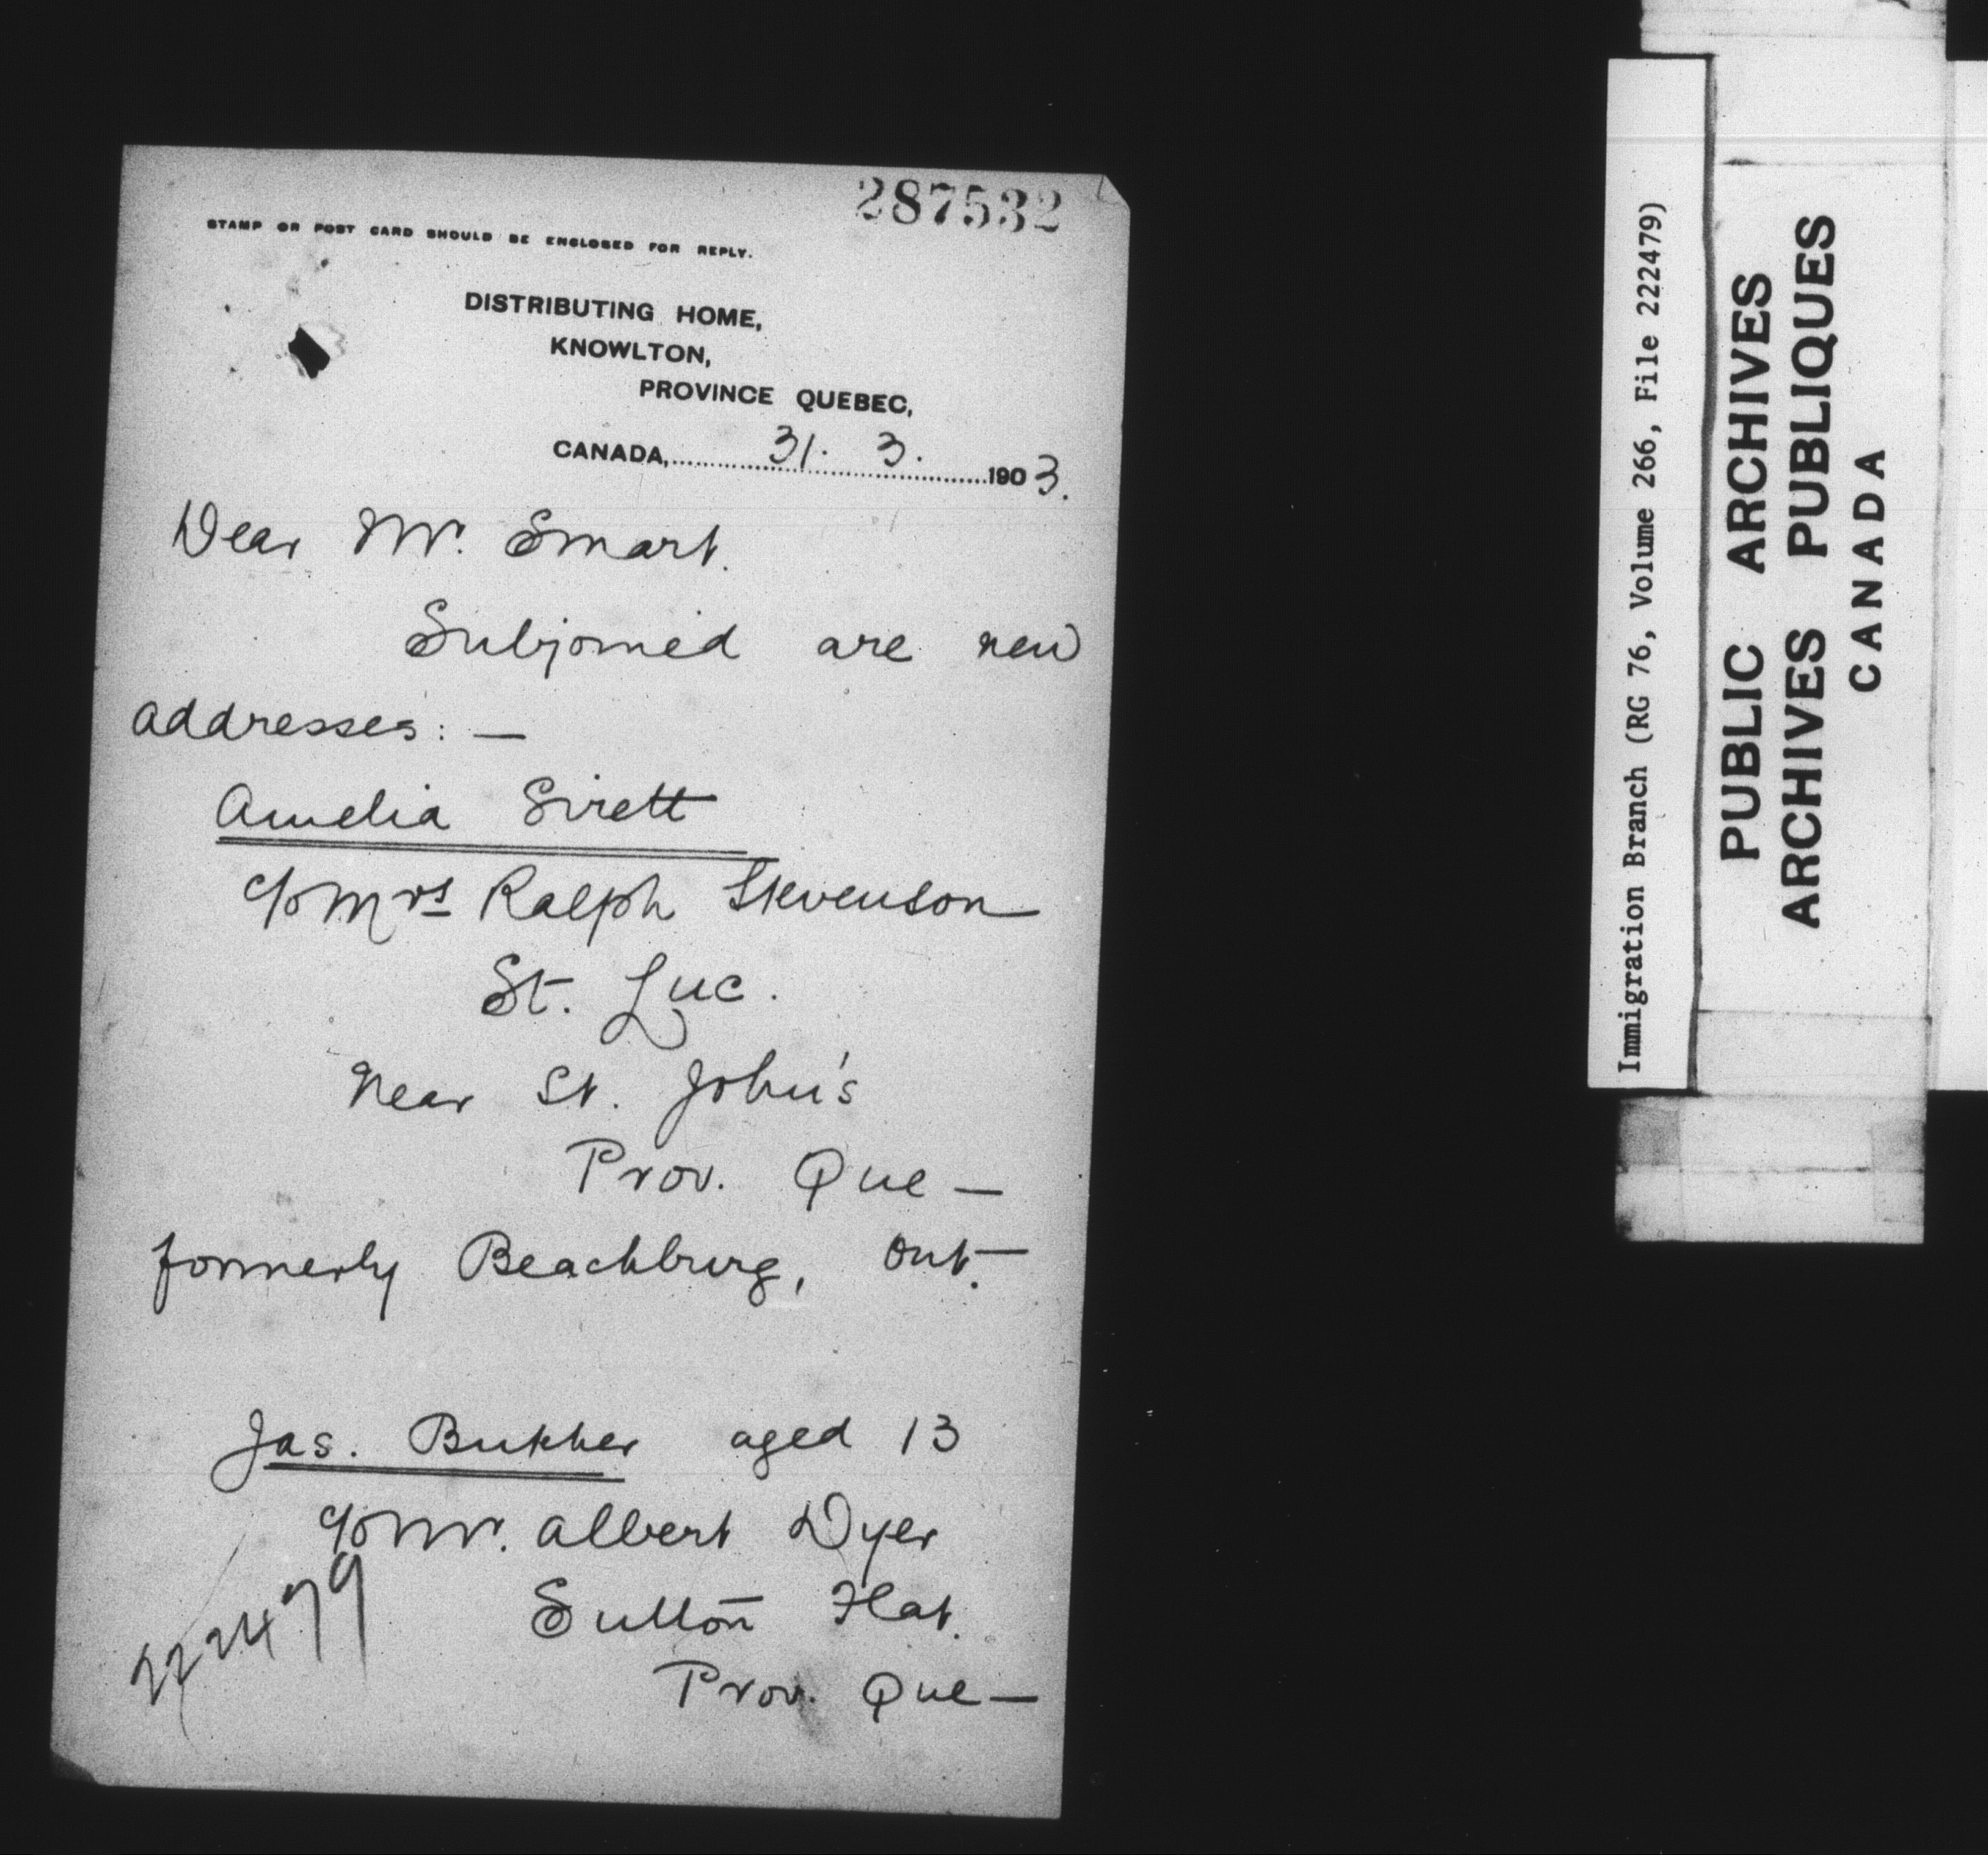 287532
STAMP OR POST CARD SHOULD BE ENCLOSED FOR REPLY.
DISTRIBUTING HOME,
KNOWLTON,
PROVINCE QUEBEC,
CANADA, 31. 3. 1903.
Dear Mr. Smart.
Subjoined are new
addresses: —
Amelia Sirett
c/o Mrs Ralph Stevenson
St. Luc.
Near St. John's
Prov. Que —
formerly Beachburg, Ont.
Jas. aged 13
c/o Mr. Albert Dyer
Sutton Flat.
Prov. Que —
222479
Immigration Branch (RG 76, Volume 266, File 222479)
PUBLIC ARCHIVES
ARCHIVES PUBLIQUES
CANADA